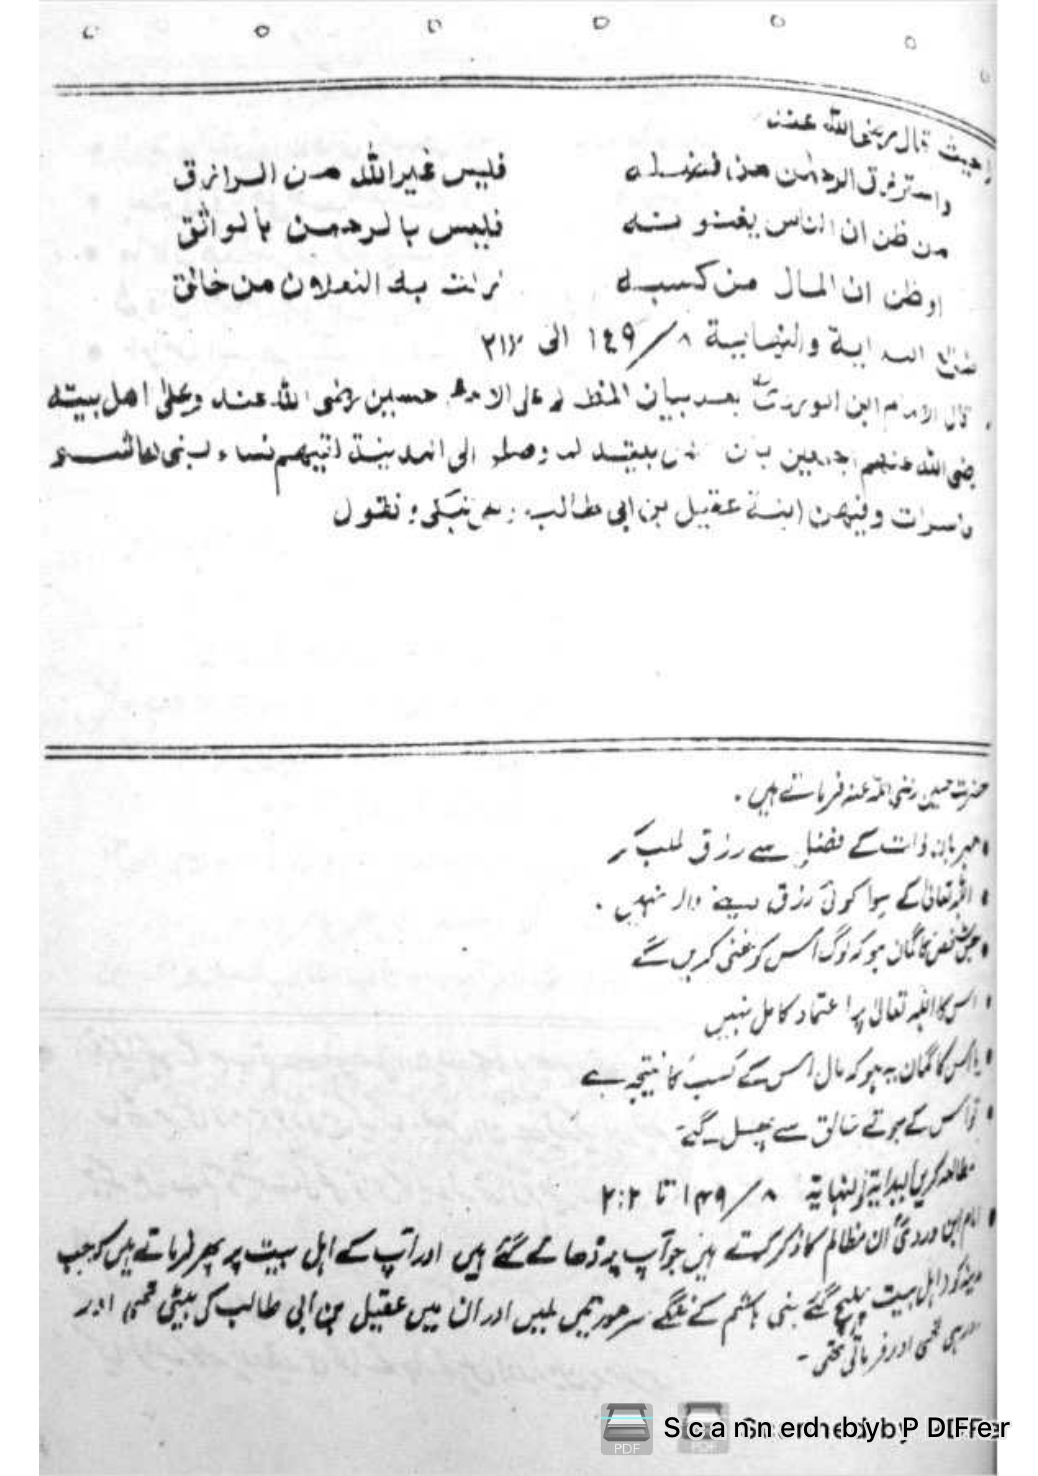 حيث قال رضى الله عنه
واسترزق الرحمن من فضله فليس غير الله من الرازق
من ظن ان الناس يغنونه فليس بالرحمن بالواثق
او ظن ان المال من كسبه زلت به النعلان من خالق
البداية والنهاية ٨/١٤٩ الى
قال الامام ابن الوردى بعد بيان على الامام حسين رضى الله عنه وعلى اهل بيته
رضى الله عنهم اجمعين بان وصلو الى المدينة لقيهم نساء بنى هاشم
حاسرات وفيهن ابنة عقيل بن ابى طالب وهى تبكى وتقول
حضرت حسین رضی اللہ عنہ فرماتے ہیں ۔
• مہربان ذات کے فضل سے رزق طلب کر
• اللہ تعالیٰ کے سوا کوئی رزق دینے والا نہیں ۔
• جس شخص کا گمان ہو کہ لوگ اس کو غنی کریں گے
• اس کا اللہ تعالیٰ پر اعتماد کامل نہیں
• یا اس کا گمان یہ ہو کہ مال اس کے کسب کا نتیجہ ہے
• تو اس کے جوتے خالق سے پھسل گئے۔
مطالعہ کریں البدایۃ والنہایۃ ٨/١٤٩ تا
• امام ابن وردی ان مظالم کا ذکر کرتے ہیں جو آپ پر ڈھائے گئے ہیں اور آپ کے اہل بیت پر پھر فرماتے ہیں کہ جب
مدینہ کو اہل بیت پہنچ گئے بنی ہاشم کے ننگے سر عورتیں ملیں اور ان میں عقیل بن ابی طالب کی بیٹی تھی اور
رو رہی تھی اور فرماتی تھی ۔